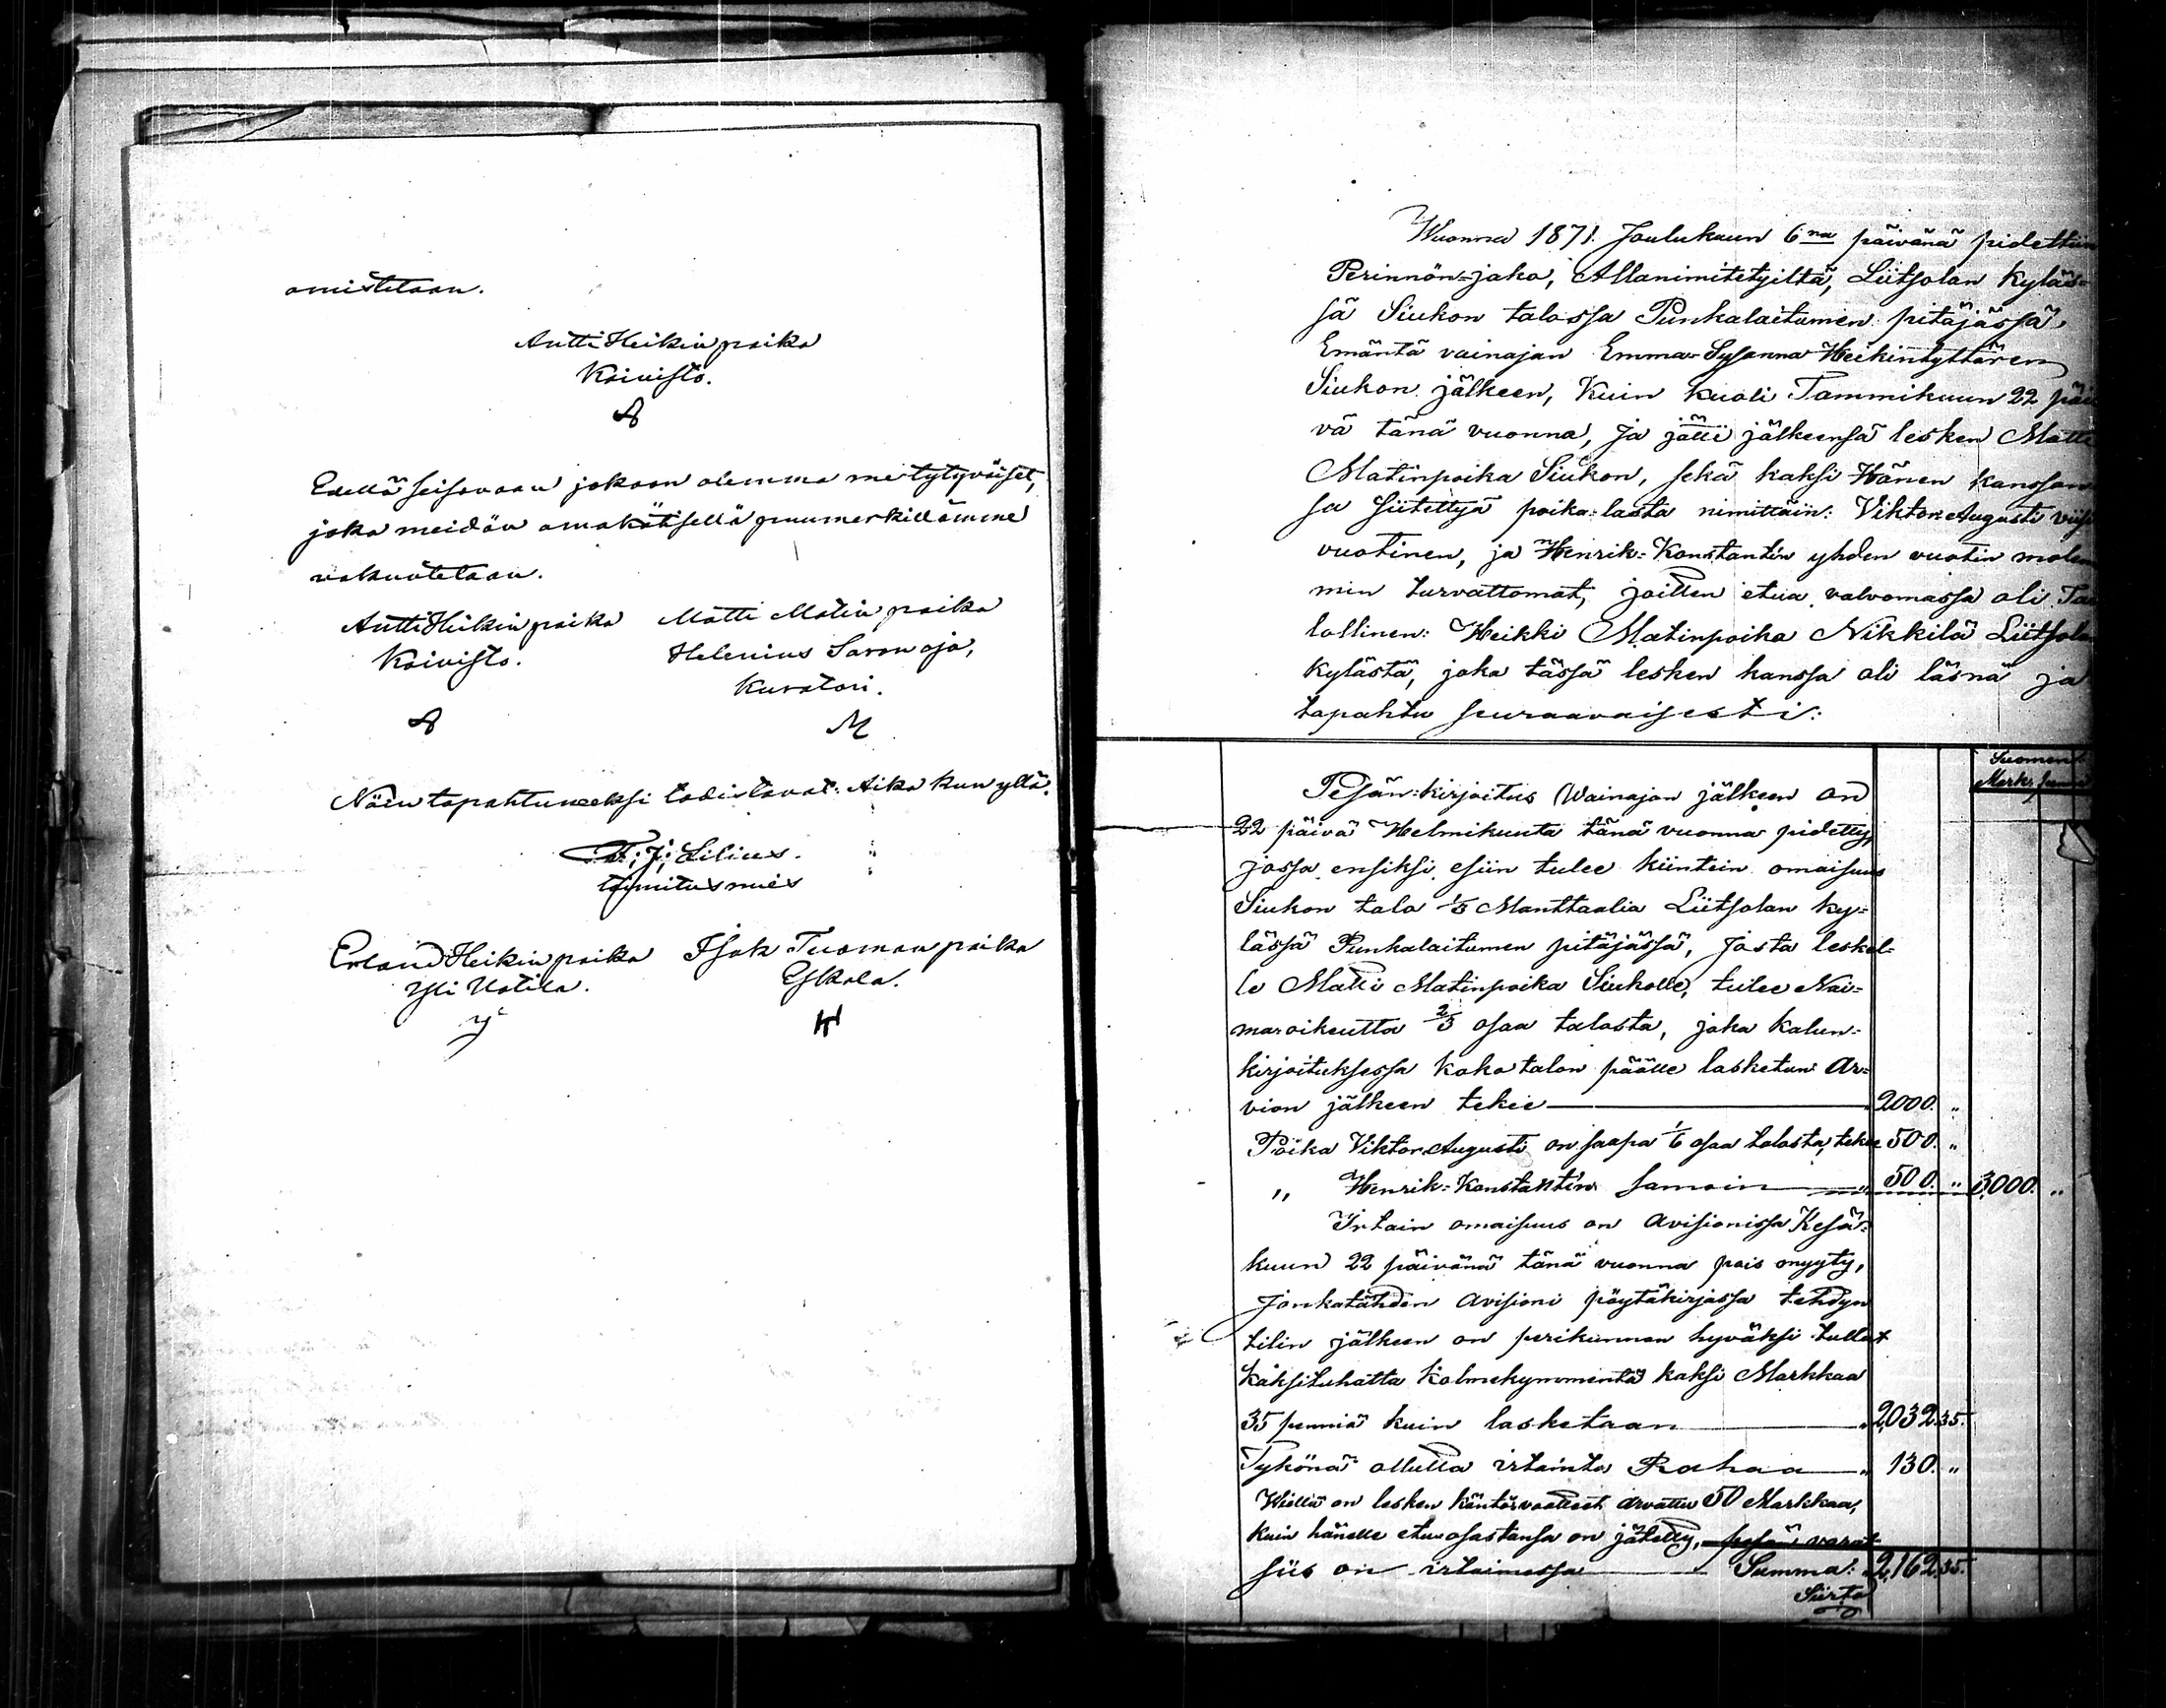 omistetaan.
Antti Heikin poika
Koivisto.
A
Edellä seisovaan jakoon olemma me tytyväiset,
joka meidän omakätisellä puumerkillämme
vakuutetaan.
Antti Heikin poika Matti Matin poika
Koivisto. Helenius Savonoja,
Kuratori.
A M
Näin tapahtuneeksi todistavat. Aika kun yllä.
F. J. Lilius.
toimitusmies
Erland Heikin poika Isak Tuoman poika
Yli Uotila. Eskola.
Wuonna 1871. Joulukuun 6na päivänä pidettiin
Perinnön-jako, Allanimitetyiltä, Liitsolan Kyläs=
sä Siukon talossa Punkalaitumen pitäjässä,
Emäntä vainajan Emma-Susanna Heikintyttären
Siukon jälkeen, Kuin kuoli Tammikuun 22 päi
vä tänä vuonna, ja jätti jälkeensä lesken Matti
Matinpoika Siukon, sekä kaksi Hänen kanssan
sa siitettyä poika-lasta nimittäin: Viktor-Augusti viisi
vuotinen, ja Henrik=Konstantin yhden vuotin molem
min turvattomat, joitten etua valvomassa oli Ta
lollinen: Heikki Matinpoika Nikkilä Liitsolan
Kylästä, joka tässä lesken kanssa oli läsnä ja
tapahtu seuraavaisesti:
Suomen
Mark. penni
Pesän-kirjoitus Wainajan jälkeen on
22 päivä Helmikuuta tänä vuonna pidetty,
jossa ensiksi esiin tulee kiintein omaisuus
Siukon talo 1/3 Manttaalia Liitsolan ky=
lässä Punkalaitumen pitäjässä, josta leskel=
le Matti Matinpoika Siukolle, tulee Nai=
maroikeutta 2/3 osaa talosta, joka kalun=
kirjoituksessa koko talon päälle lasketun Ar=
vion jälkeen tekee 2000. "
Poika Viktor Augusti on saapa 1/6 osaa talosta, tekee 500. "
" Henrik=Konstantin samoin " 500. " 3,000. "
Irtain omaisuus on Avisionissa Kesä=
kuun 22 päivänä tänä vuonna pois myyty,
Jonkatähden Avisioni pöytäkirjassa tehdyn
tilin jälkeen on perikunnan hyväksi tullut
Kaksituhatta Kolmekymmentä kaksi Markkaa
35 penniä kuin lasketaan " 2,032.35.
Tykönä ollutta irtainta Rahaa " 130. "
Wiellä on lesken käntövaatteet arvattu 50 Markkaa,
kuin hänelle etuosastansa on jätetty, pesän varat
siis on irtaimessa Summa: 2,162.35.
Siirto